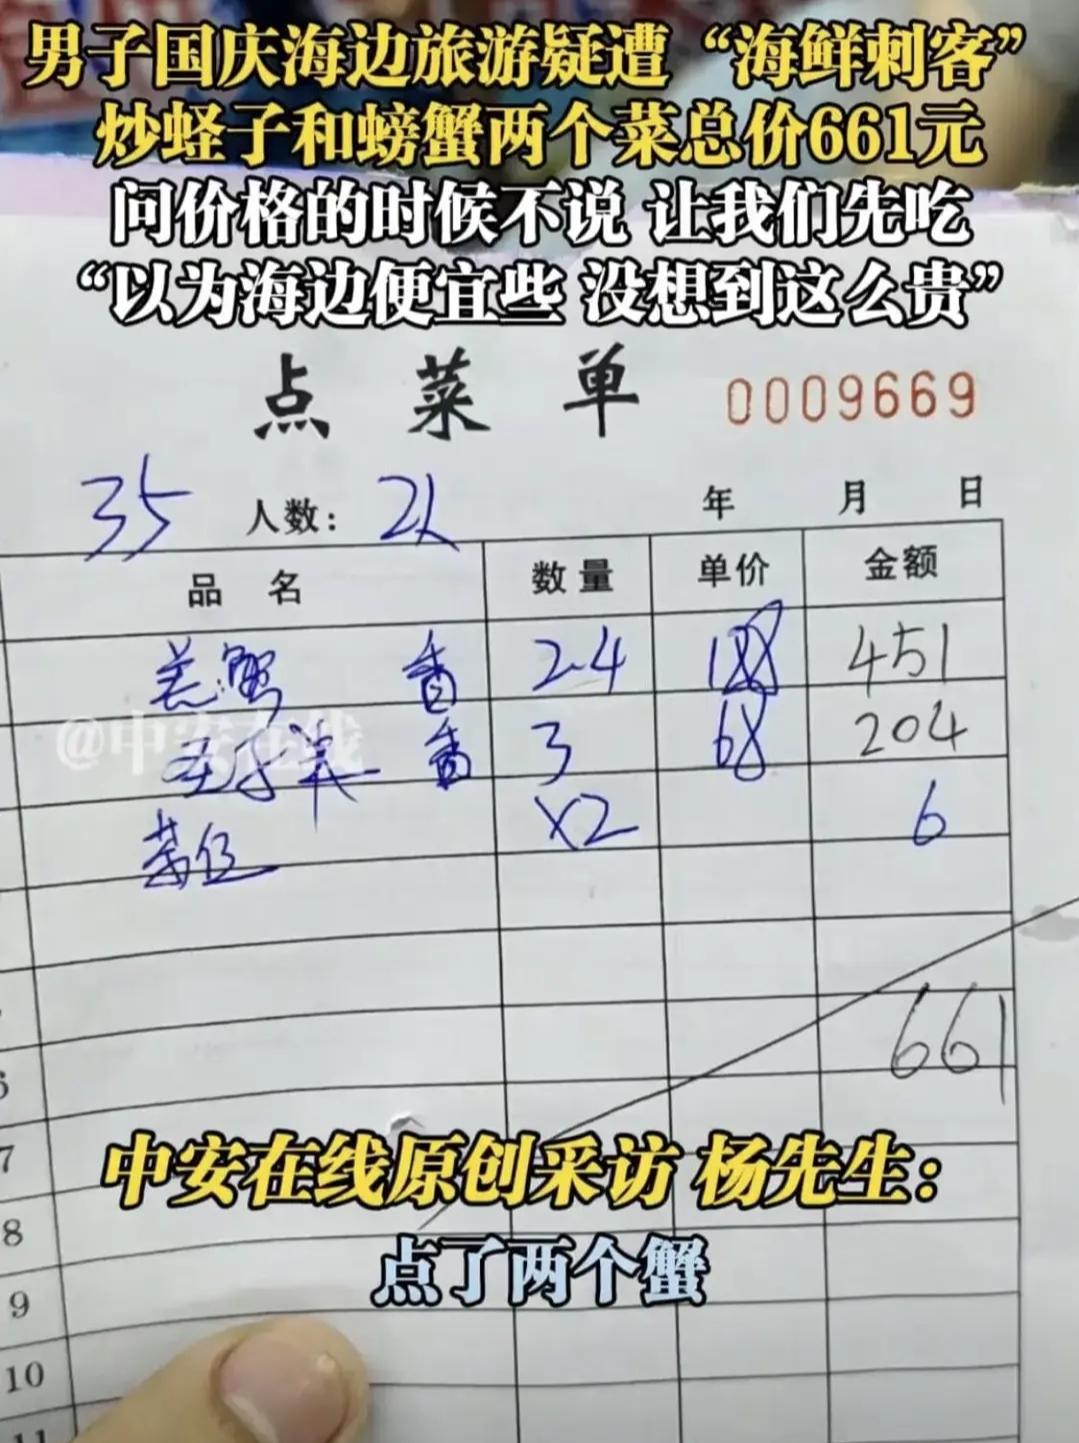 男子国庆海边旅游疑遭“海鲜刺客”
炒蛏子和螃蟹两个菜总价661元
问价格的时候不说 让我们先吃
“以为海边便宜些 没想到这么贵”
点菜单 0009669
35 人数： 2人
年 月 日
品名 数量 单价 金额
蟹 香 2.4 188 451
@中安在线
香 3 68 204
茶位 x2 6
661
6
7
中安在线原创采访 杨先生：
8
点了两个蟹
9
10
11